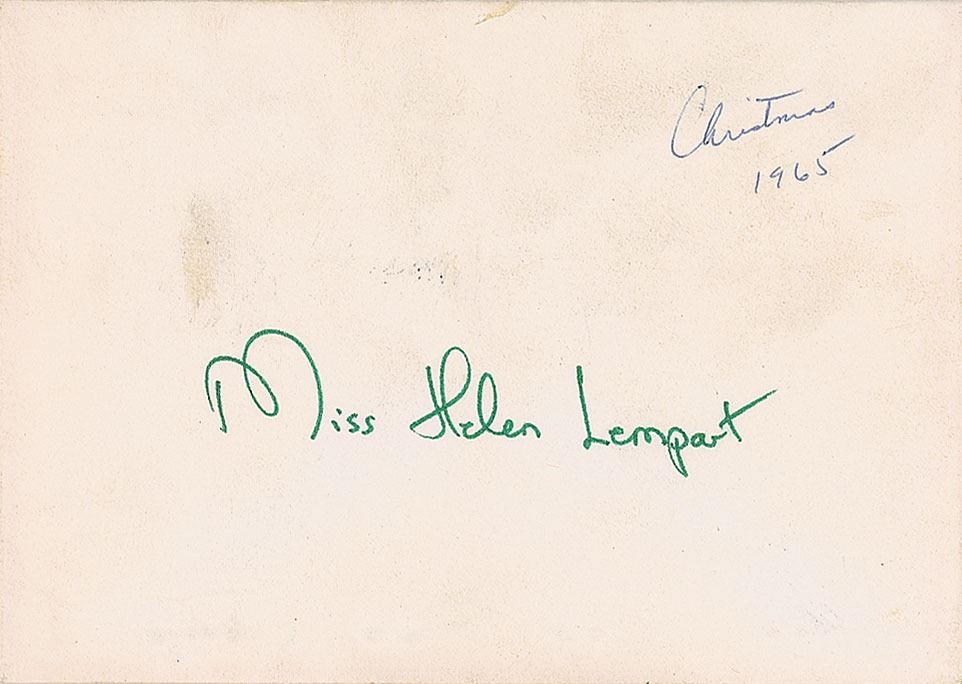 Christmas
1965
Miss Helen Lempart